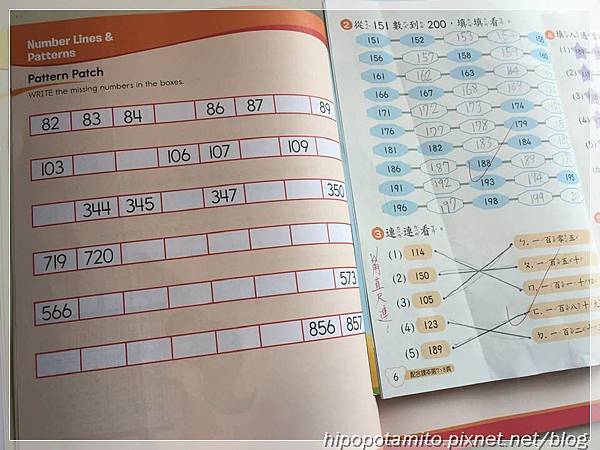 Number Lines &
Patterns
Pattern Patch
WRITE the missing numbers in the boxes.
82 83 84 86 87 89
103 106 107 109
344 345 347 350
719 720
573
566
856 857
❷ 從 151 數到 200,填填看。
151 152 153 155
156 157 158 159 160
161 162 163 164
166 167 168 169
171 172 173 174
176 177 178 179
181 182 183 184
186 187 188
191 192 193 194 195
196 197 198 199
❸ 連連看。
(1) 114
(2) 150
(3) 105
(4) 123
(5) 189
ㄅ. 一百零五
ㄆ. 一百五十
ㄇ. 一百一十四
ㄈ. 一百八十九
ㄉ. 一百二十
以用直尺連!
6 配合課本第7、8頁
(1)
(2)
(3)
(4)
(5)
hipopotamito.pixnet.net/blog